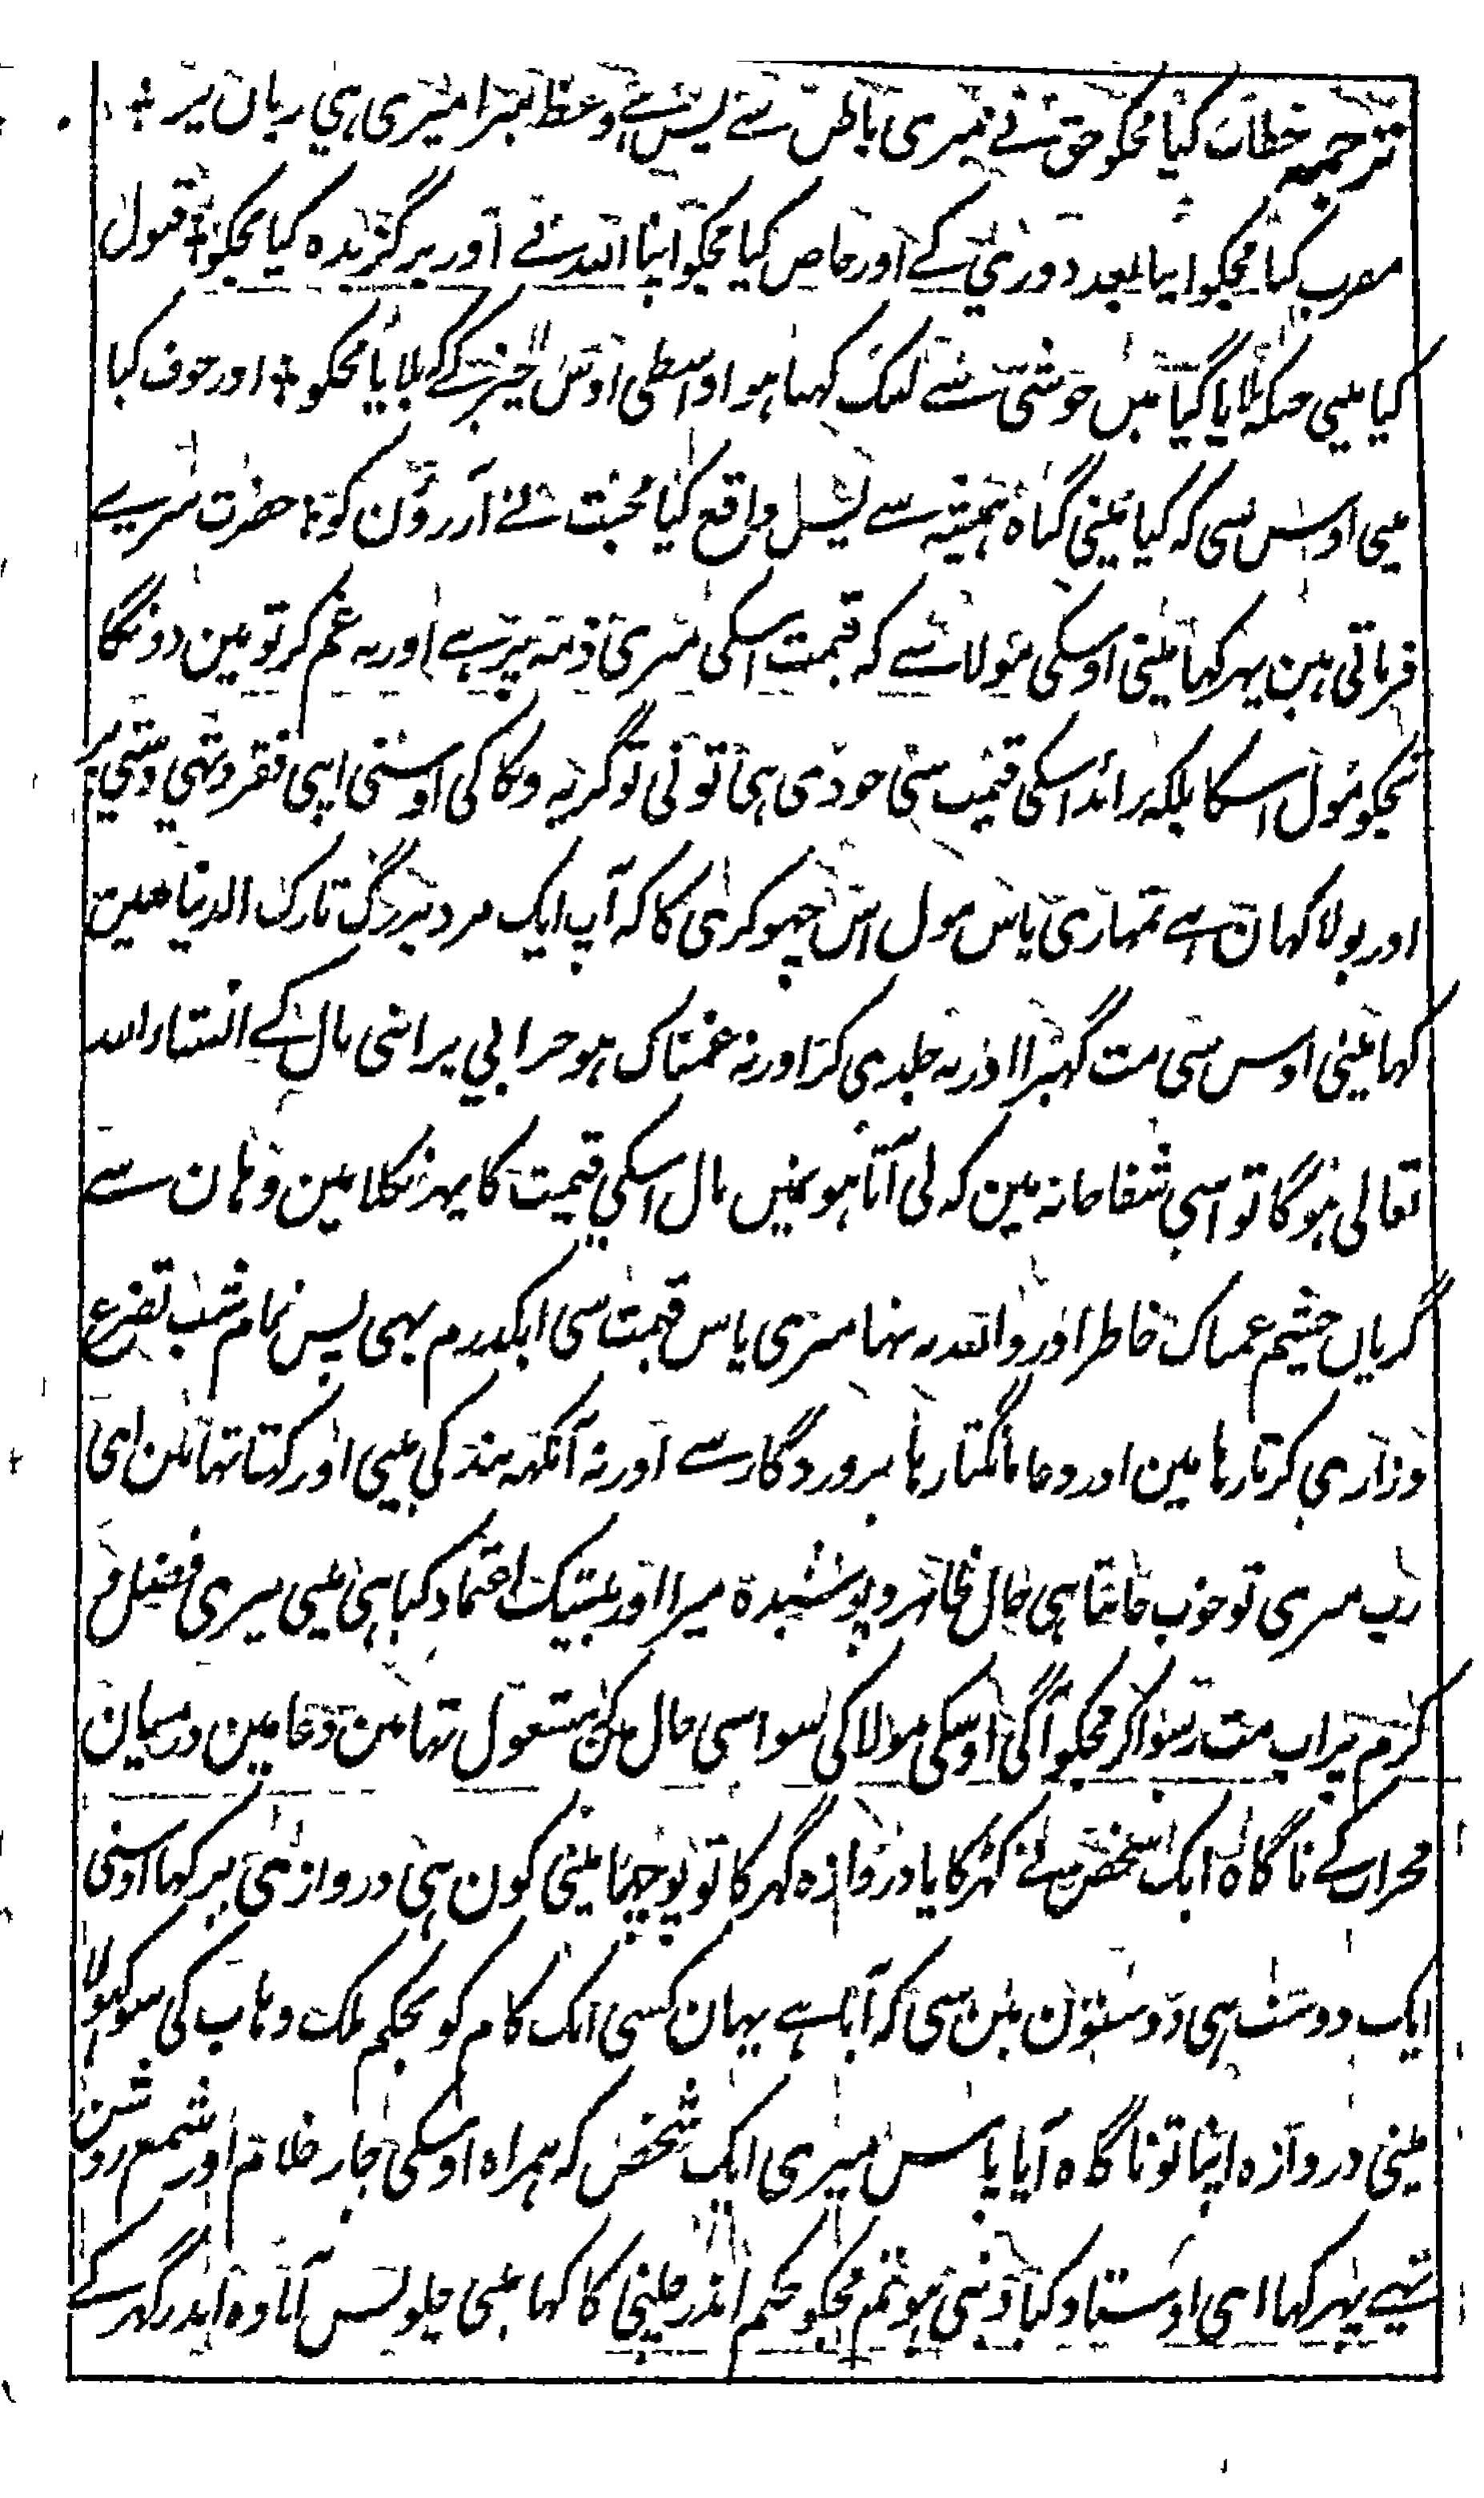 ترجمہ خطاب کیا مجکو حق نے میری باطن سے پس ہے وعظ میرا میری ہی زبان پر +
مقرب کیا مجکو اپنا بعد دوری کے اور خاص کیا مجکو اپنا اللہ نے اور برگزیدہ کیا مجکو + قبول
کیا مینی جبکہ بلایا گیا مین خوشی سے لبیک کہتا ہوا واسطی اوس چیز کے کہ بلایا مجکو + اور خوف کیا
مینی اوس سی کہ کیا مینی گناہ ہمیشہ سے پس واقع کیا محبت نے آرزوؤن کو + حضرت سری
فرماتی ہین پہر کہا مینی اوسکی مولا سے کہ قیمت اسکی میری ذمہ پر ہے اور نہ غم کر تو مین دونگا
تجکو مول اسکا بلکہ زائد اسکی قیمت سی جو دی ہی تو نی تو گریہ و بکا کی اوسنی اپنی فقر و تہی دستی پر
اور بولا کہان ہے تمہاری پاس مول اس چہوکری کا کہ آپ ایک مرد بزرگ تارک الدنیا ہین
کہا مینی اوس سی مت گہبرا اور نہ جلدی کر اور نہ غمناک ہو خرابی پر اپنی مال کے انشاء اللہ
تعالی ہوگا تو اسی شفاخانہ مین کہ لی آتا ہون مین مال اسکی قیمت کا پہر نکلا مین وہان سے
گریان چشم غمناک خاطر اور واللہ نہ تہا میری پاس قیمت سی ایکدرم بہی پس تمام شب تضرع
و زاری کرتا رہا مین اور دعا مانگتا رہا پروردگار سے اور نہ آنکہہ بند کی مینی اور کہتا تہا مین ای
رب میری تو خوب جانتا ہی حال ظاہر و پوشیدہ میرا اور بیشک اعتماد کیا ہی مینی تیری فضل و
کرم پر اب مت رسوا کر مجکو آگی اوسکی مولا کی سو اسی حال مین مشغول تہا مین دعا مین درمیان
محراب کے ناگاہ ایک شخص نے کہڑکایا دروازہ گہر کا تو پوچہا مینی کون ہی دروازی پر کہا اوسنی
ایک دوست ہی دوستون مین سی کہ آیا ہے یہان کسی ایک کام کو بحکم ملک وہاب کی سو کہولا
مینی دروازہ اپنا تو ناگاہ آیا پاس میری ایک شخص کہ ہمراہ اوسکی چار غلام اور شمع روشن
تہی پہر کہا ای اوستاد کیا دیتی ہو تم مجکو حکم اندر چلنی کا کہا مینی چلو پس آیا وہ اندر گہر کے